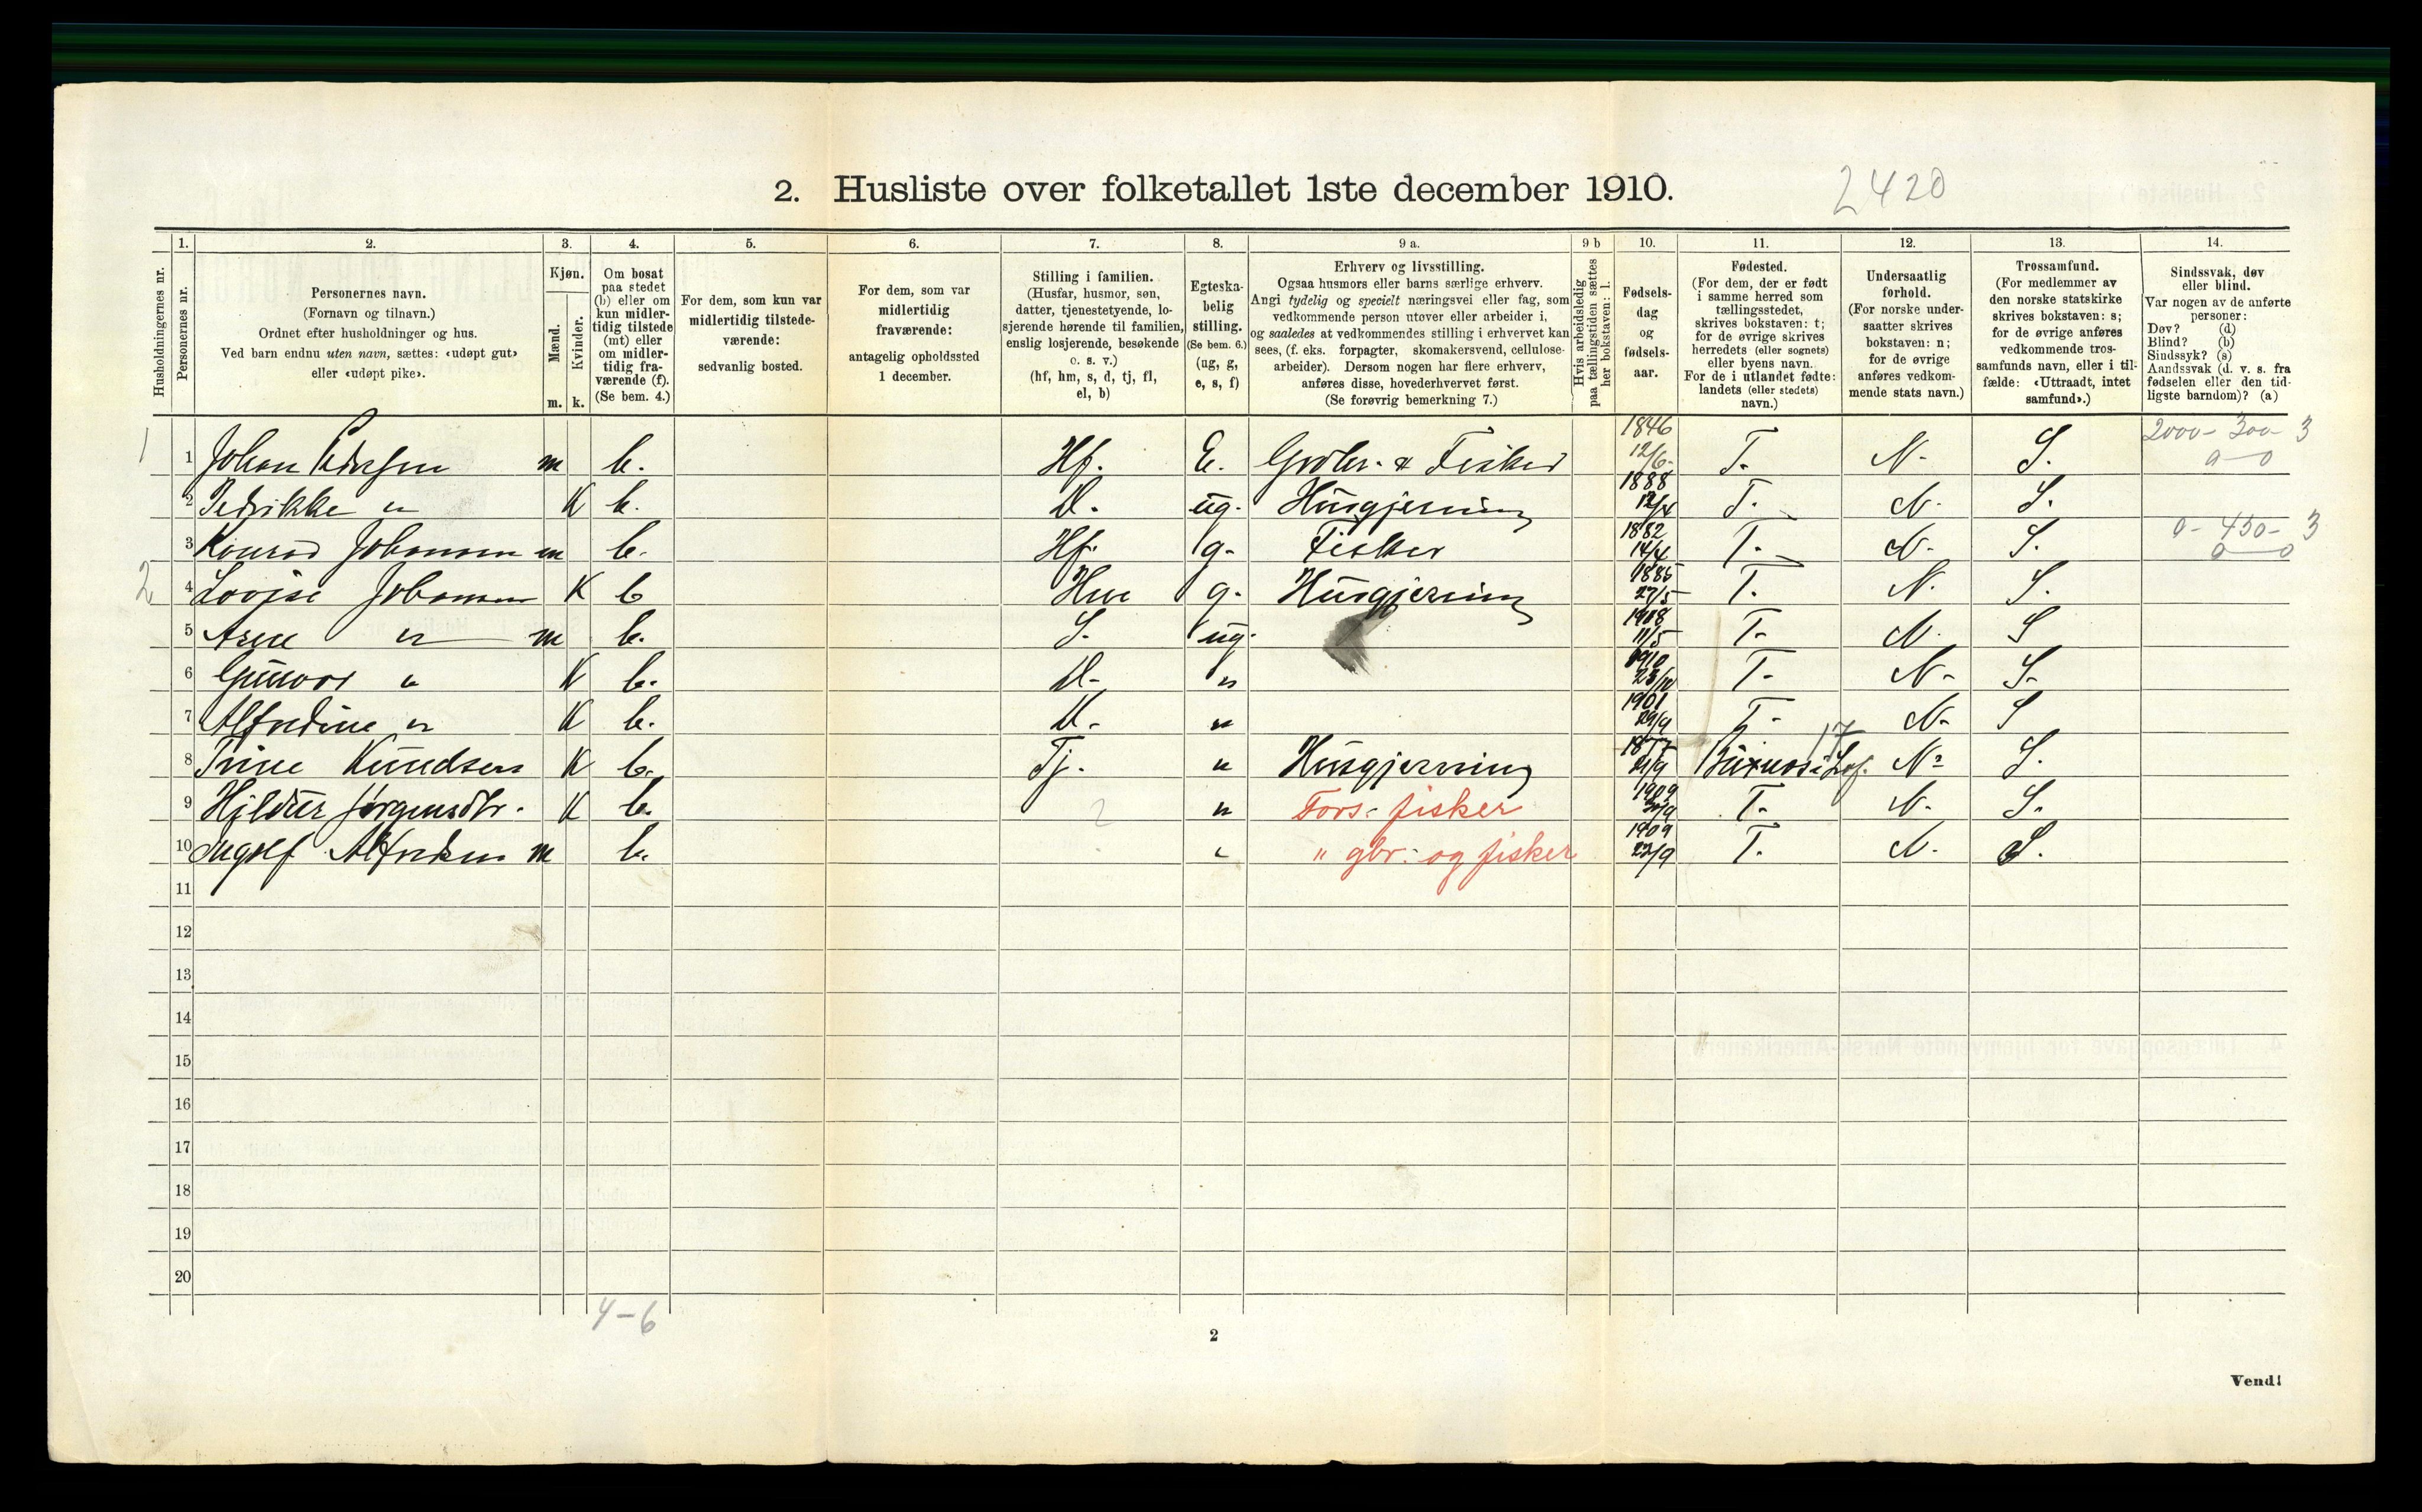 2. Husliste over folketallet 1ste december 1910.
2420
1. 2. 3. 4. 5. 6. 7. 8. 9 a. 9 b 10. 11. 12. 13. 14.
Husholdningernes nr.
Personernes nr.
Personernes navn.
(Fornavn og tilnavn.)
Ordnet efter husholdninger og hus.
Ved barn endnu uten navn, sættes: «udøpt gut»
eller «udøpt pike».
Kjøn.
Mænd.
Kvinder.
m. k.
Om bosat
paa stedet
(b) eller om
kun midler-
tidig tilstede
(mt) eller
om midler-
tidig fra-
værende (f).
(Se bem. 4.)
For dem, som kun var
midlertidig tilstede-
værende:
sedvanlig bosted.
For dem, som var
midlertidig
fraværende:
antagelig opholdssted
1 december.
Stilling i familien.
(Husfar, husmor, søn,
datter, tjenestetyende, lo-
sjerende hørende til familien,
enslig losjerende, besøkende
o. s. v.)
(hf, hm, s, d, tj, fl,
el, b)
Egteska-
belig
stilling.
(Se bem. 6.)
(ug, g,
e, s, f)
Erhverv og livsstilling.
Ogsaa husmors eller barns særlige erhverv.
Angi tydelig og specielt næringsvei eller fag, som
vedkommende person utøver eller arbeider i,
og saaledes at vedkommendes stilling i erhvervet kan
sees, (f. eks. forpagter, skomakersvend, cellulose-
arbeider). Dersom nogen har flere erhverv,
anføres disse, hovederhvervet først.
(Se forøvrig bemerkning 7.)
Hvis arbeidsledig
paa tællingstiden sættes
her bokstaven: l.
Fødsels-
dag
og
fødsels-
aar.
Fødested.
(For dem, der er født
i samme herred som
tællingsstedet,
skrives bokstaven: t;
for de øvrige skrives
herredets (eller sognets)
eller byens navn.
For de i utlandet fødte:
landets (eller stedets)
navn.)
Undersaatlig
forhold.
(For norske under-
saatter skrives
bokstaven: n;
for de øvrige
anføres vedkom-
mende stats navn.)
Trossamfund.
(For medlemmer av
den norske statskirke
skrives bokstaven: s;
for de øvrige anføres
vedkommende tros-
samfunds navn, eller i til-
fælde: «Uttraadt, intet
samfund».)
Sindssvak, døv
eller blind.
Var nogen av de anførte
personer:
Døv? (d)
Blind? (b)
Sindssyk? (s)
Aandssvak (d. v. s. fra
fødselen eller den tid-
ligste barndom)? (a)
1 1 Johan m b. Hf. E. Grdbr. & Fisker 1846 12/6- T. N. S. 2000- 300- 3 0-0
2 Pedrikke " K b. D. ug. Husgjerning 1888 12/4 T. N. S.
3 Konrad Johansen m b. Hf. g. Fisker 1882 14/4 T. N. S. 0- 450- 3 0-0
2 4 Lovise Johansen K b Hm g. Husgjerning 27/5 T. N. S.
5 Arne " m b. S. ug. 1908 11/5 T. N. S
6 Gunvor " K b. D. " 1910 T. N. S.
7 Alfredine " K b. D. " 1901 29/9 T. N. S
8 Trine Knudsen K b. Tj. " Husgjerning N. S.
17
9 Hildur Jørgensdtr. K b. 2 " Fors: fisker 1909 T. N. S.
10 Ingolf Alfredsen m b. " " gbr: og fisker 1909 27/9 T. N. S.
11
12
13
14
15
16
17
18
19
20
4-6
2
Vend!